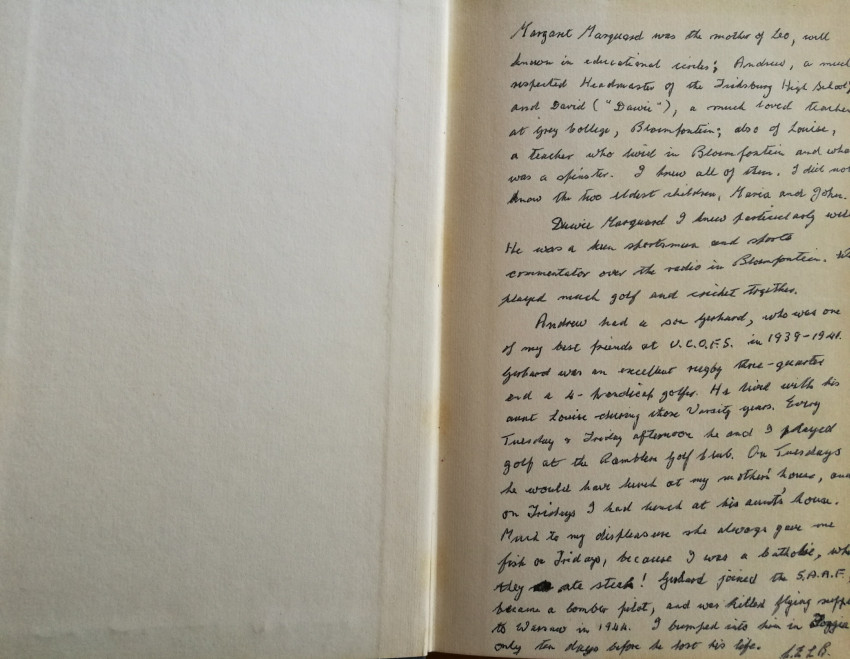 Margaret Marquard was the mother of Leo, well
known in educational circles; Andrew, a much
respected Headmaster of the Friksburg High School;
and David ("Dawie"), a much loved teacher
at Grey College, Bloemfontein; also of Louise,
a teacher who lived in Bloemfontein and who
was a spinster. I knew all of them. I did not
know the two eldest children, Maria and John.
Dawie Marquard I knew particularly well
He was a keen sportsman and sports
commentator over the radio in Bloemfontein. We
played much golf and cricket together.
Andrew had a son Gerhard, who was one
of my best friends at U.C.O.F.S. in 1939-1941.
Gerhard was an excellent rugby three-quarter
and a 4-handicap golfer. He lived with his
aunt Louise during those Varsity years. Every
Tuesday & Friday afternoon he and I played
golf at the Ramblers Golf Club. On Tuesdays
he would have lunch at my mother's house, and
on Fridays I had lunch at his aunt's house.
Much to my displeasure she always gave me
fish on Fridays, because I was a Catholic, while
they ate steak! Gerhard joined the S.A.A.F.,
became a bomber pilot, and was killed flying supplies
to Warsaw in 1944. I bumped into him in Foggia
only ten days before he lost his life.